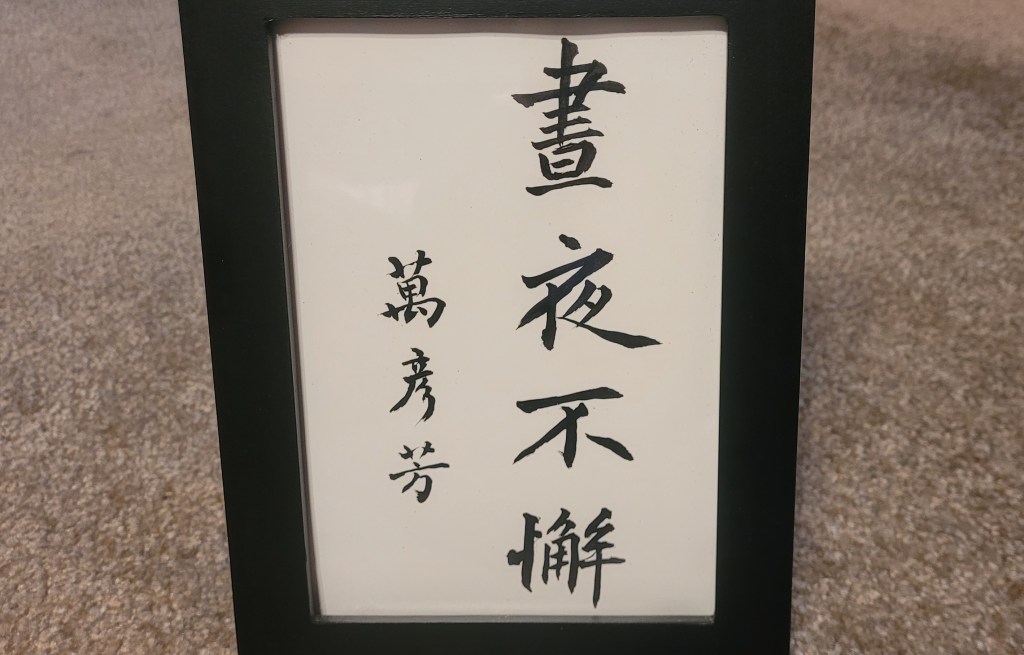 晝夜不懈
萬彥芳